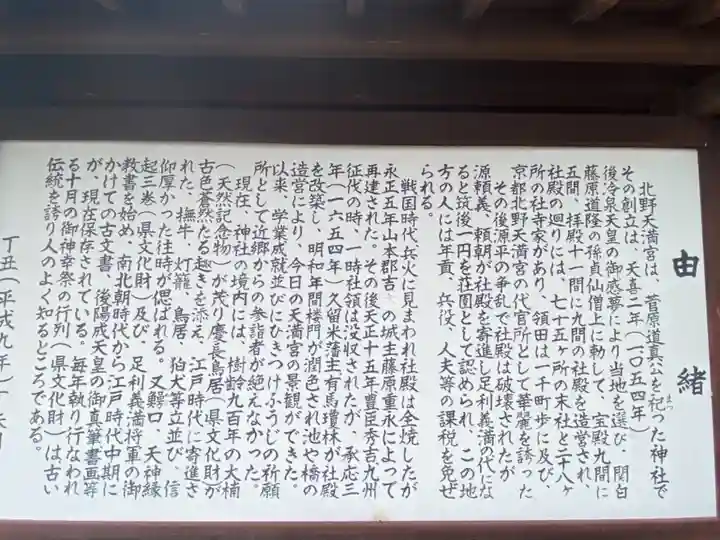 由緒
北野天満宮は、菅原道真公を祀った神社で
まつ
その創立は、天喜二年(一〇五四年)
後冷泉天皇の御感夢により当地を選び・関白
藤原道隆の孫貞仙僧上に勅して、宝殿九間に
五間、拝殿十一間に九間の社殿を造営され、
社殿の廻りには、七十五ヶ所の末社と二十八ヶ
所の社寺家があり、領田は一千町歩に及び、
京都北野天満宮の代官所として華麗を誇った
その後源平の争乱で社殿は破壊されたが
源頼義、頼朝が社殿を寄進し足利義満の代にな
ると筑後一円を荘園として認められ、この地
方の人には年貢、兵役、人夫等の課税を免ぜ
られる。
戦国時代兵火に見まわれ社殿は全焼したが
永正五年山本郡吉 の城主藤原重永によって
再建された。その後天正十五年豊臣秀吉九州
征伐の時、一時社領は没収されたが、承応三
年(一六五四年)久留米藩主有馬瓊林が社殿
を改築し、明和年間楼門が潤色され池や橋の
造営により、今日の天満宮の景観ができた。
以来、学業成就並びにひきつけふうじの祈願
所として近郷からの参詣者が絶えなかった。
現在、神社の境内には、樹齢九百年の大楠
(天然記念物)が茂り慶長鳥居(県文化財)が
古色蒼然たる趣きを添え、江戸時代に寄進さ
れた、撫牛、灯籠、鳥居、狛犬等立並び、信
仰厚かった往時が偲ばれる。又鰐口・天神縁
起三巻(県文化財)及び、足利義満将軍の御
教書を始め、南北朝時代から江戸時代中期に
かけての古文書、後陽成天皇の御真筆書画等
が、現在保存されている。毎年執り行なわれ
る十月の御神幸祭の行列(県文化財)は古い
伝統を誇り人のよく知るところである。
丁丑(平成九年)